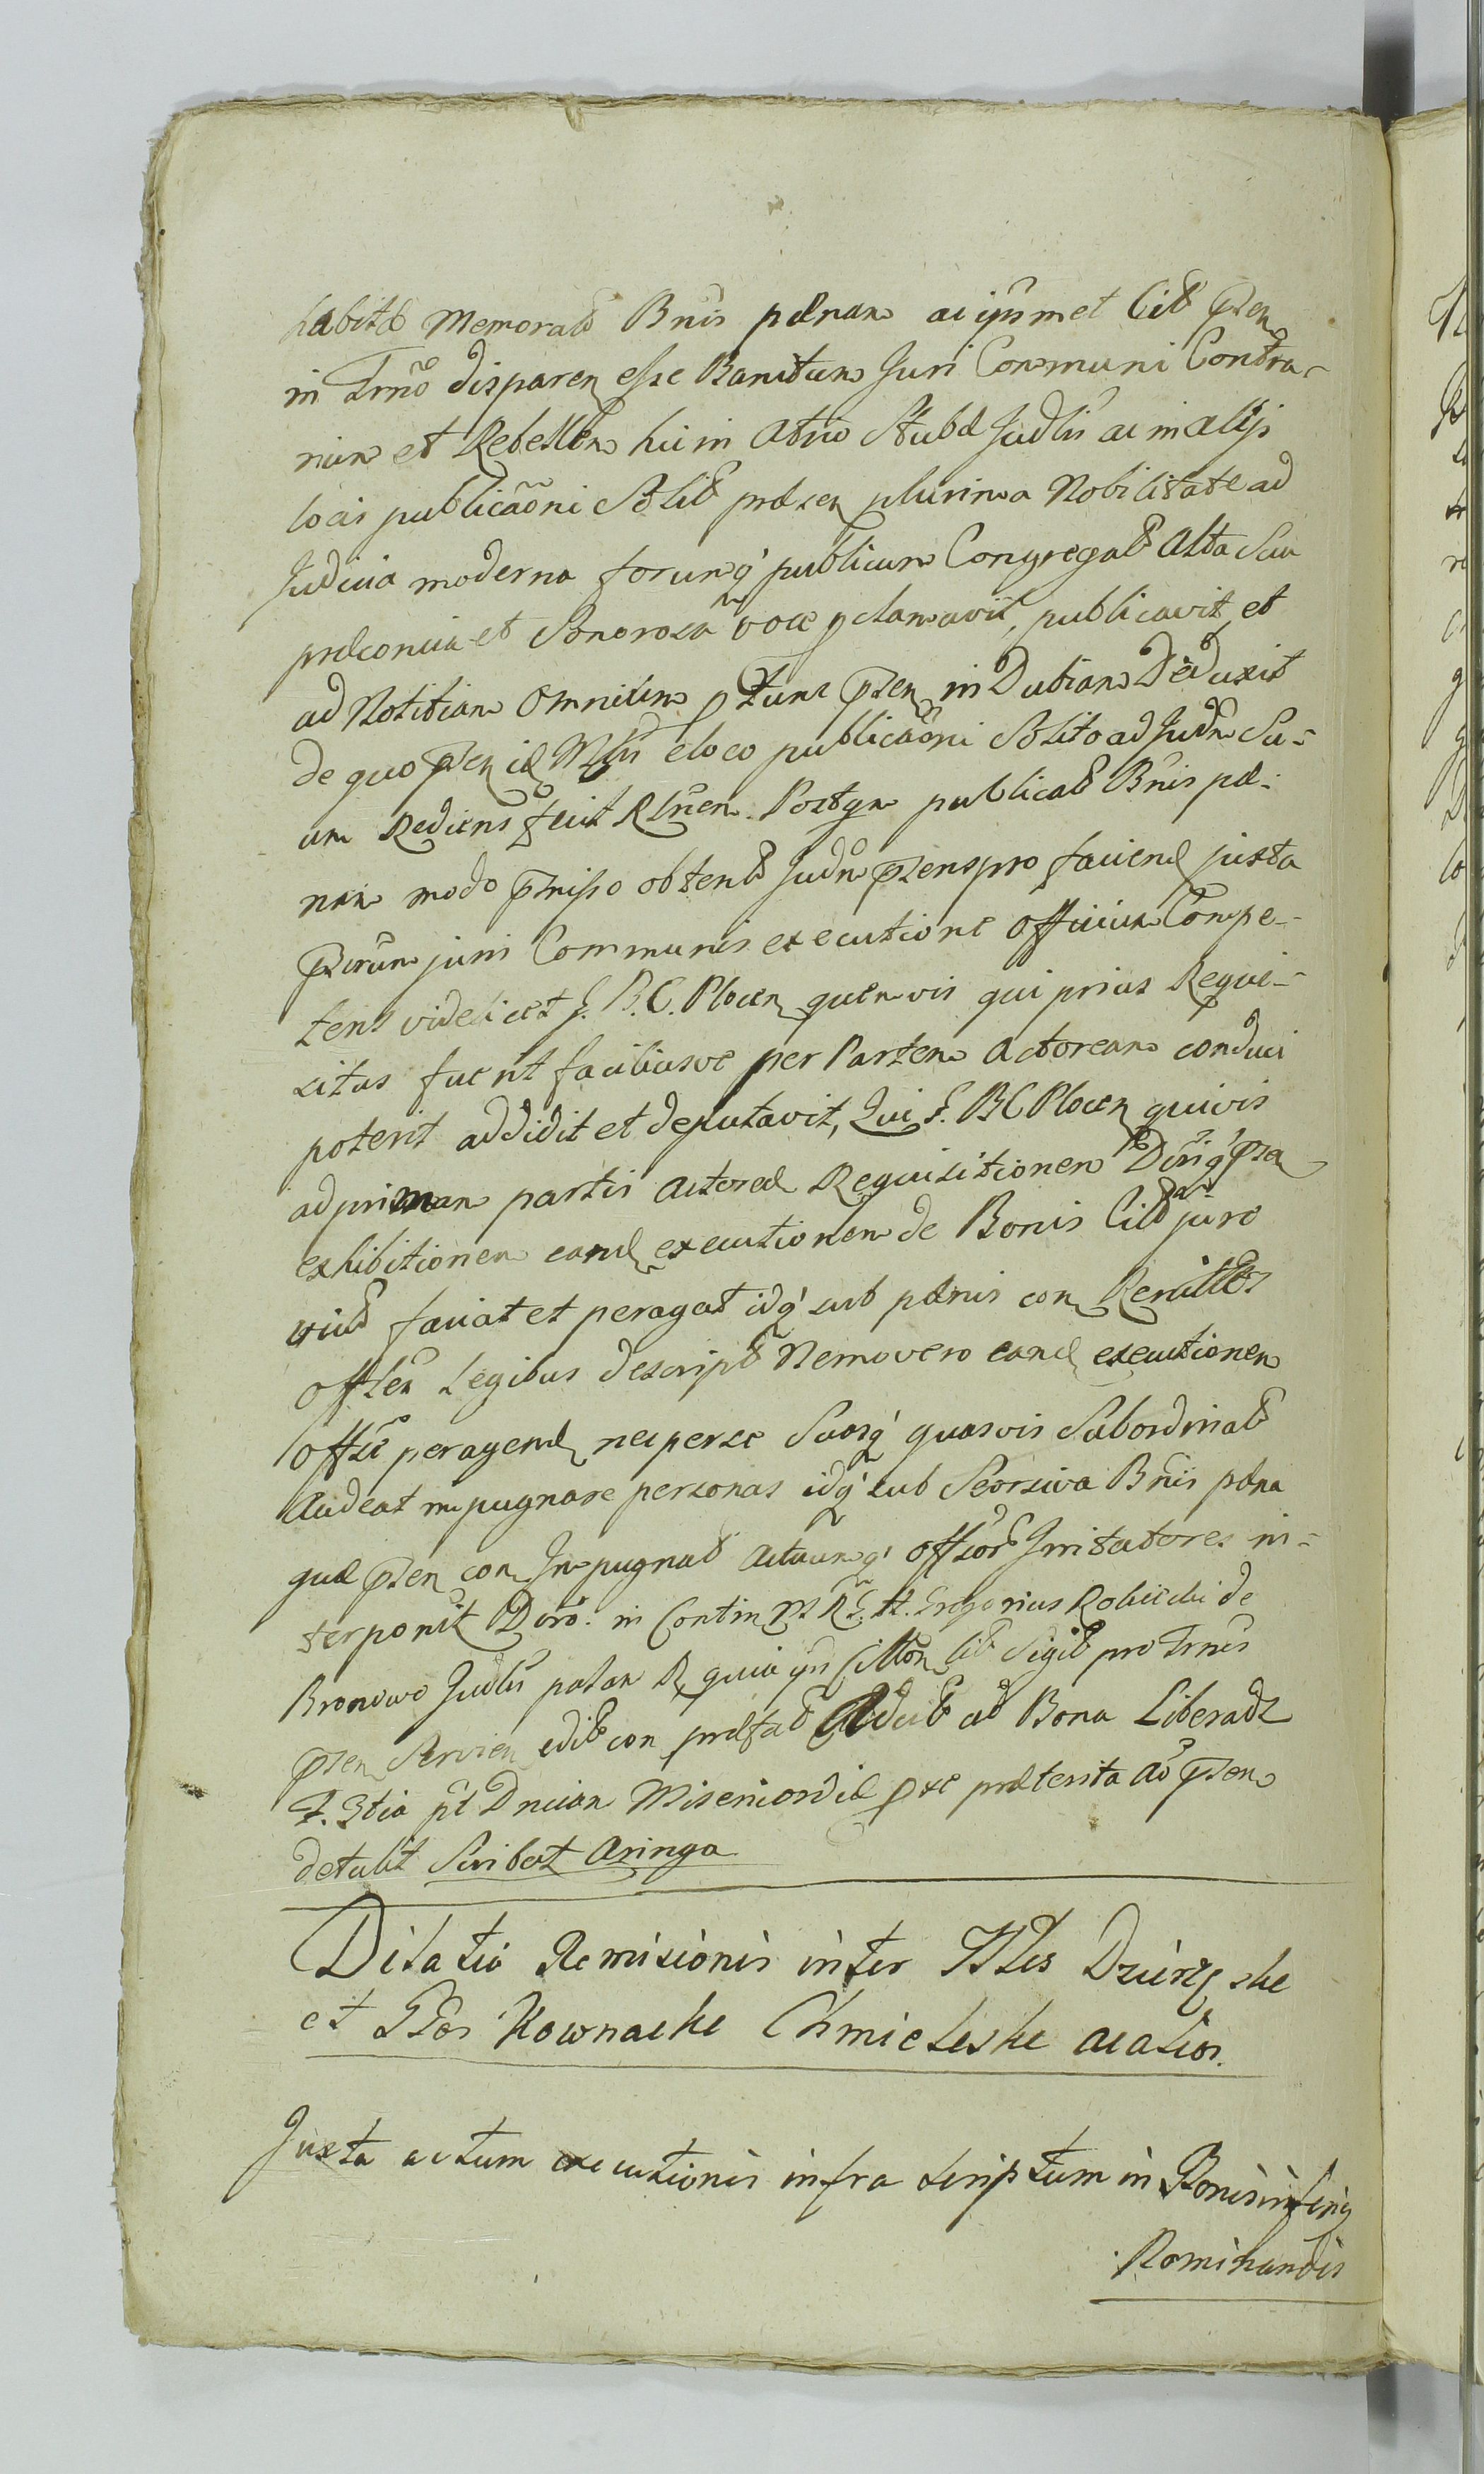 habitæ Memoratæ Bnis pænam ac ipsmet Cit pſen
in Trnō disparen eſse Banitum Juri Communi Contra-
rium et Rebellem hic in Atrio Stubæ Judlis ac in alijs
locis publicaōni Solit præsen plurima Nobilitate ad
Judicia moderna forumq' publicum Congregat Alta Sua
præconicia et Sonorosa voce pclamavit, publicavit, et
ad Notitiam Omnium ptunc pſen in Dubiam Deduxit
de quo pſen id Mstlis eloco publicaōni Solito ad Judm Su-
um Rediens fecit Rlnem. Postqm publicat Bnis pæ-
nam modo pmiſso obtent Judm pſens pro faciend juxta
pſcrum juris Communis executione Officium Compe-
tens videlicet S. B. C. Plocen quemvis qui prius Requi-
situs fuerit faciliusve per Partem Actoream conduci
poterit addidit et deputavit, Qui S. B C Plocen quivis
ad primam partis Actoreæ Requisitionem Driq' pſen
exhibitionem eand executionem de Bonis Citti jure
vict faciat et peragat idq' sub pænis con Remiss
Offſen Legibus descript Nemo vero eand executionem
Offſe peragend nec per se Suasq' quasvis Subordinat
Audeat impugnare personas idq' sub Seorsiva Bnis pæna
quæ pſen con Impugnat Actuumq' Offſor Irritatores in-
terponit Dcro. in Contin Gregorius de
Bronowo Judlis palam R quia ipse litt Sigil pro Trnis
pſen Servien edit con præfat ad Bona Liberadz
F. 3tia pt Dnicam Misericordiæ pxe præterita Ao pſen
detulit Scribat Aringa
Dilatio Remisionis inter Dzierzgske
et Kownacke Chmieleske ac alios.
Juxta actum executionis infra scriptum in Bonis inferius
Nominandis